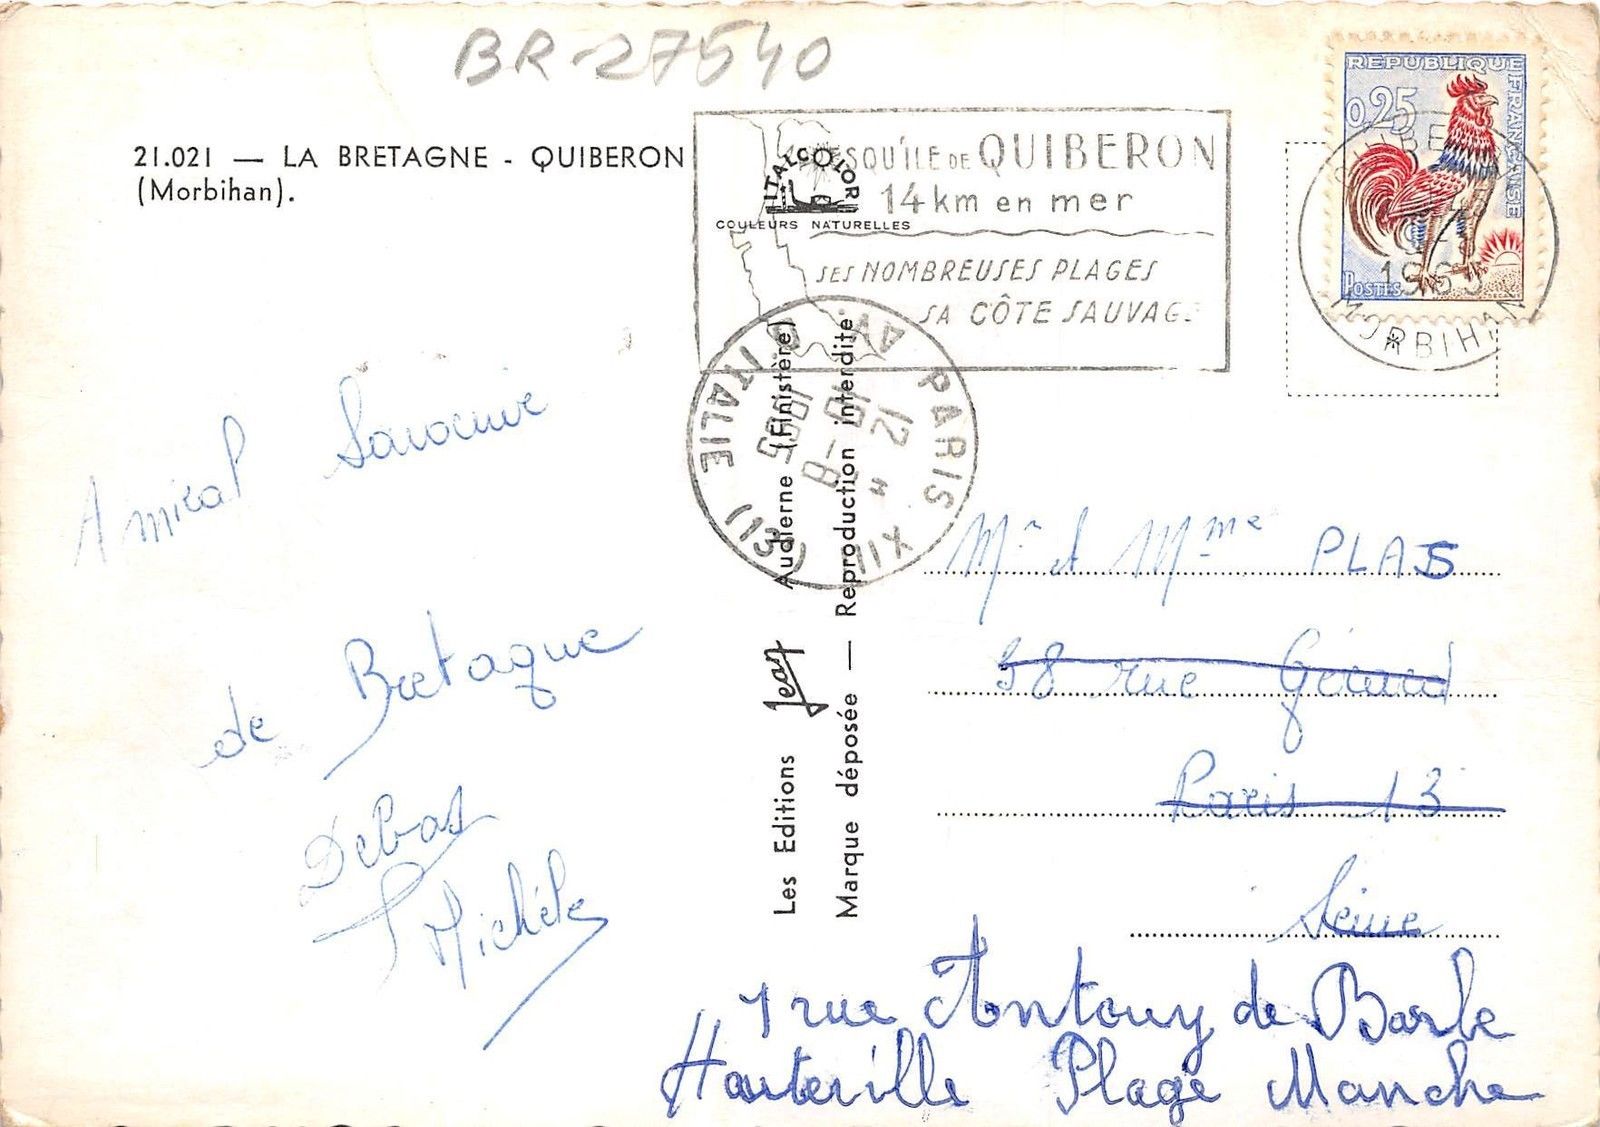 BR-27540
21.021 — LA BRETAGNE - QUIBERON
(Morbihan).
ITALCOLOR
COULEURS NATURELLES
QU'ILE DE QUIBERON
14 km en mer
SES NOMBREUSES PLAGES
SA CÔTE SAUVAGE
REPUBLIQUE FRANÇAISE
0,25
POSTES
MORBIHAN
PARIS XIII
AV. D'ITALIE (13E)
12 H
8-8
1965
Amical Souvenir
de Bretagne
Debas
Michèle
Les Editions Jean Audierne (Finistère)
Marque déposée — Reproduction interdite
Mr et Mme PLAS
38 rue Gérard
Paris 13
Seine
1 rue Antony de Barle
Hauteville Plage Manche